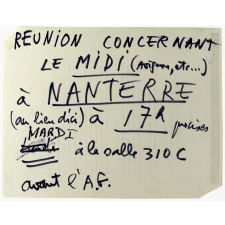 REUNION CONCERNANT
LE MIDI (Avignon, etc...)
à NANTERRE
(au lieu d'ici) à 17h précises
MARDI
à la salle 310 C
avant l'A.G.